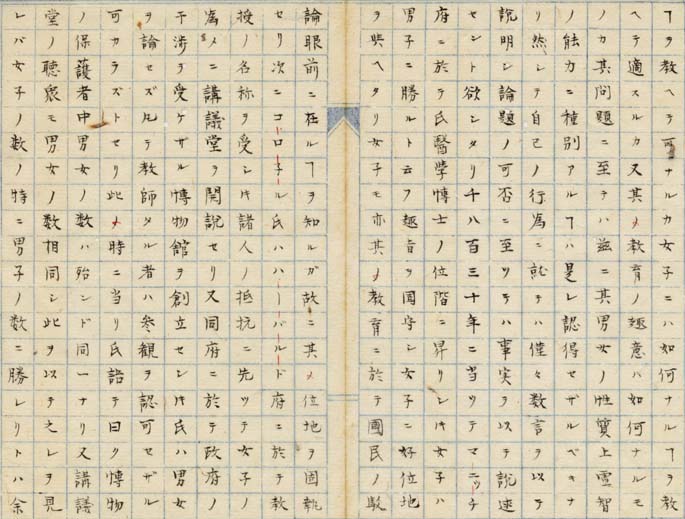 ヿヲ教ヘテ可ナルカ女子ニハ如何ナルヿヲ教
ヘテ適スルカ又其〆教育ノ趣意ハ如何ナルモ
ノカ其問題ニ至テハ茲ニ其男女ノ性質上霊智
ノ能力ニ種別アルヿハ是レ認得セザルベキナ
リ然シテ自己ノ行為ニ就テハ僅々数言ヲ以テ
説明シ論題ノ可否ニ至ツテハ事実ヲ以テ説述
セント欲シタリ千八百三十年ニ当ツテマニッチ
府ニ於テ氏醫學博士ノ位階ニ昇リシ𪜈女子ハ
男子ニ勝ルト云フ趣旨ヲ固守シ女子ニ好位地
ヲ與ヘタリ女子モ亦其〆教育ニ於テ國民ノ駁
論眼前ニ在ルヿヲ知ルガ故ニ其〆位地ヲ固執
セリ次ニコロ子ル氏ハハーバルード府ニ於テ教
授ノ名称ヲ受シ𪜈諸人ノ抵抗ニ先ツテ女子ノ
為メニ講議堂ヲ開説セリ又同府ニ於テ政府ノ
干渉ヲ受ケザル博物館ヲ創立セシ𪜈氏ハ男女
ヲ論セズ凡テ教師タル者ハ参観ヲ認可セザル
可カラズトセリ此〆時ニ当リ氏語テ曰ク博物
ノ保護者中男女ノ数ハ殆ンド同一ナリ又講議
堂ノ聴衆モ男女ノ数相同シ此ヲ以テ之レヲ見
レバ女子ノ数ノ特ニ男子ノ数ニ勝レリトハ余